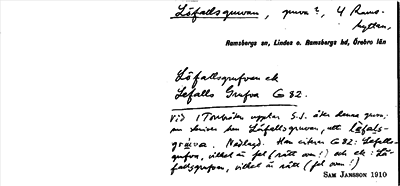 Löfallsgruvan, gruva?, 4 Rams-
hyttan,
Ramsbergs sn, Lindes o. Ramsbergs hd, Örebro län
Löfallsgrufvan ek
Lefalls Grufva G 82.
Vid 1 Torrbäken upplar S.J. åter denna gruva;
skrives den Löfallsgruvan, utt. Läfals-
gruva. Nedlagd. Han citerar G 82: Lefalls-
grufva, vilket är fel (rätt om!) och ek: Lö-
fallsgrufvan, vilket är rätt (fel om!)
SAM JANSSON 1910